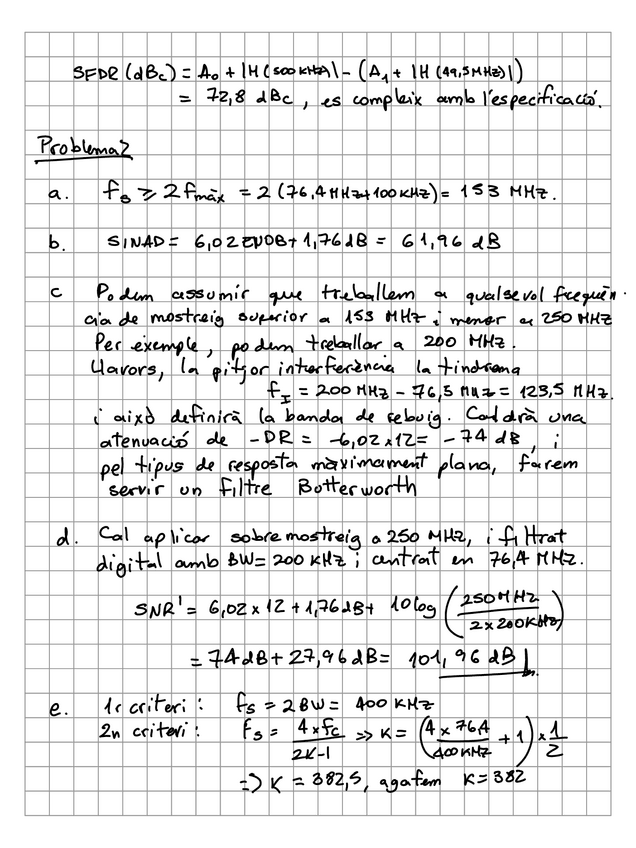 SFDR (dBc) = A₀ + |H(500KHz)| - (A₁ + |H(49,5MHz)|)
= 72,8 dBc, es compleix amb l'especificació.
Problema 2
a. fs ≥ 2fmàx = 2(76,4MHz+100KHz) = 153 MHz.
b. SINAD = 6,02 ENOB + 1,76dB = 61,96 dB
c Podem assumir que treballem a qualsevol freqüèn-
cia de mostreig superior a 153 MHz i menor a 250 MHz
Per exemple, podem treballar a 200 MHz.
Llavors, la pitjor interferència la tindrem a
f_I = 200MHz - 76,5 MHz = 123,5 MHz.
i això definirà la banda de rebuig. Caldrà una
atenuació de -DR = -6,02x12 = -74 dB, i
pel tipus de resposta màximament plana, farem
servir un filtre Botterworth
d. Cal aplicar sobremostreig a 250 MHz, i filtrat
digital amb BW=200 KHz i centrat en 76,4 MHz.
SNR' = 6,02 x 12 + 1,76dB + 10log (250MHz / 2x200KHz)
= 74dB + 27,96dB = 101,96 dB
e. 1r criteri: fs = 2BW = 400 KHz
2n criteri: fs = 4xfc / 2K-1 => K = (4 x 76,4 / 400KHz + 1) x 1/2
=> K = 382,5, agafem K=382